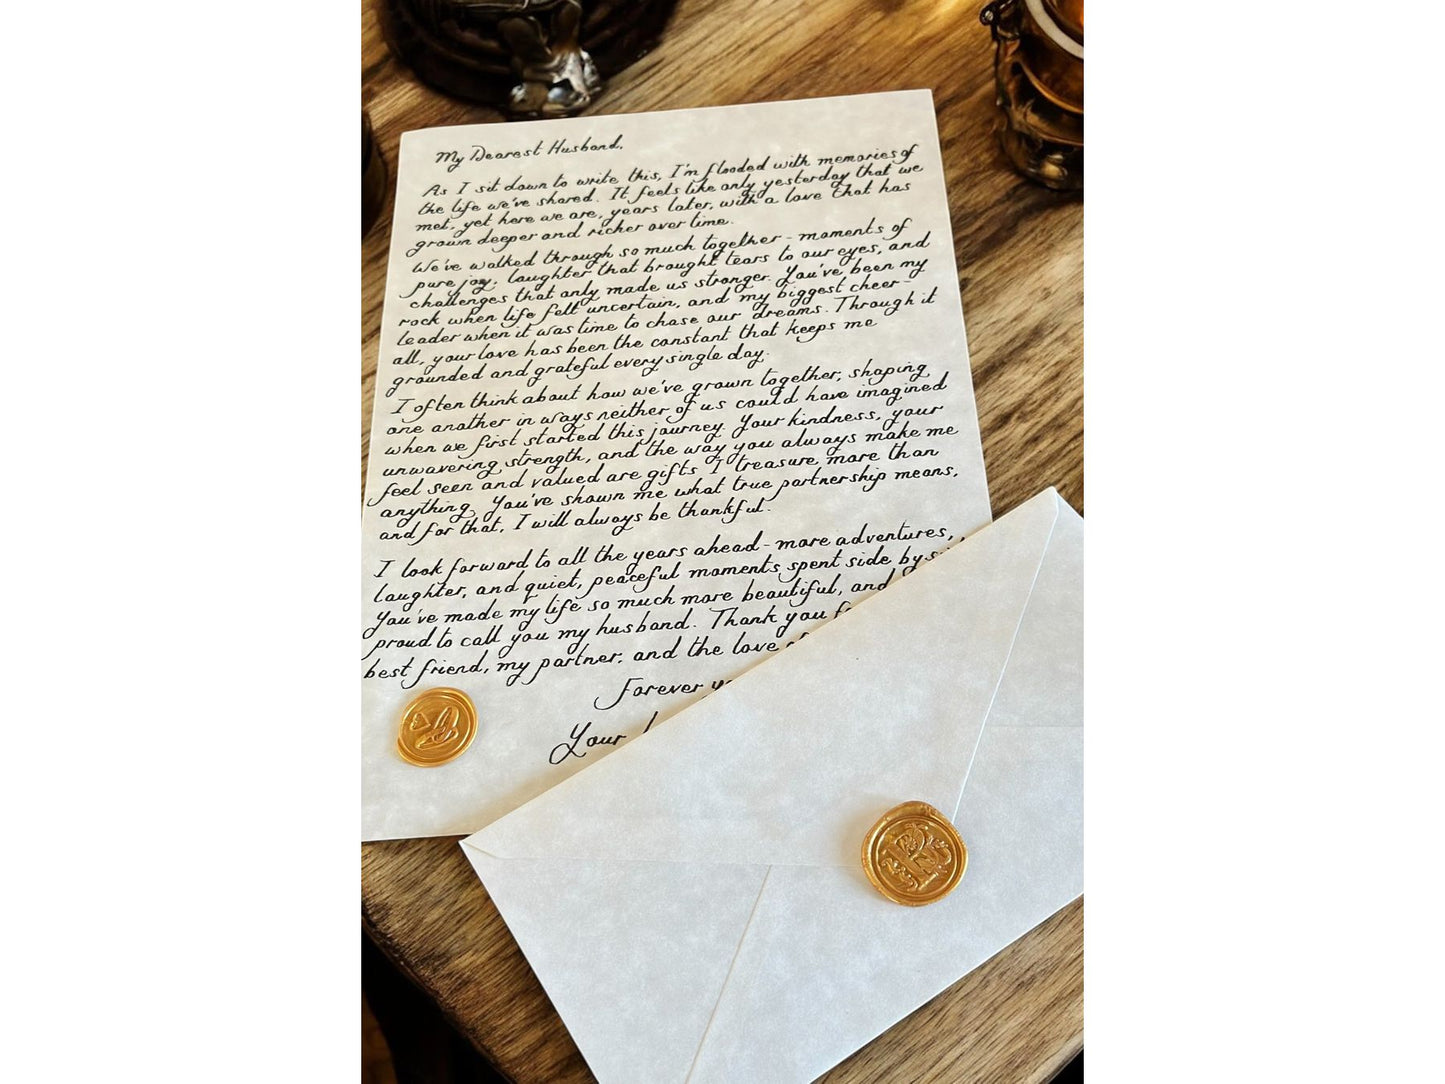 My Dearest Husband,
As I sit down to write this, I'm flooded with memories of
the life we've shared. It feels like only yesterday that we
met, yet here we are, years later, with a love that has
grown deeper and richer over time.
We've walked through so much together - moments of
pure joy, laughter that brought tears to our eyes, and
challenges that only made us stronger. You've been my
rock when life felt uncertain, and my biggest cheer-
leader when it was time to chase our dreams. Through it
all, your love has been the constant that keeps me
grounded and grateful every single day.
I often think about how we've grown together, shaping
one another in ways neither of us could have imagined
when we first started this journey. Your kindness, your
unwavering strength, and the way you always make me
feel seen and valued are gifts I treasure more than
anything. You've shown me what true partnership means,
and for that, I will always be thankful.
I look forward to all the years ahead - more adventures,
laughter, and quiet, peaceful moments spent side by
You've made my life so much more beautiful, and
proud to call you my husband. Thank you
best friend, my partner, and the love
Forever
Your